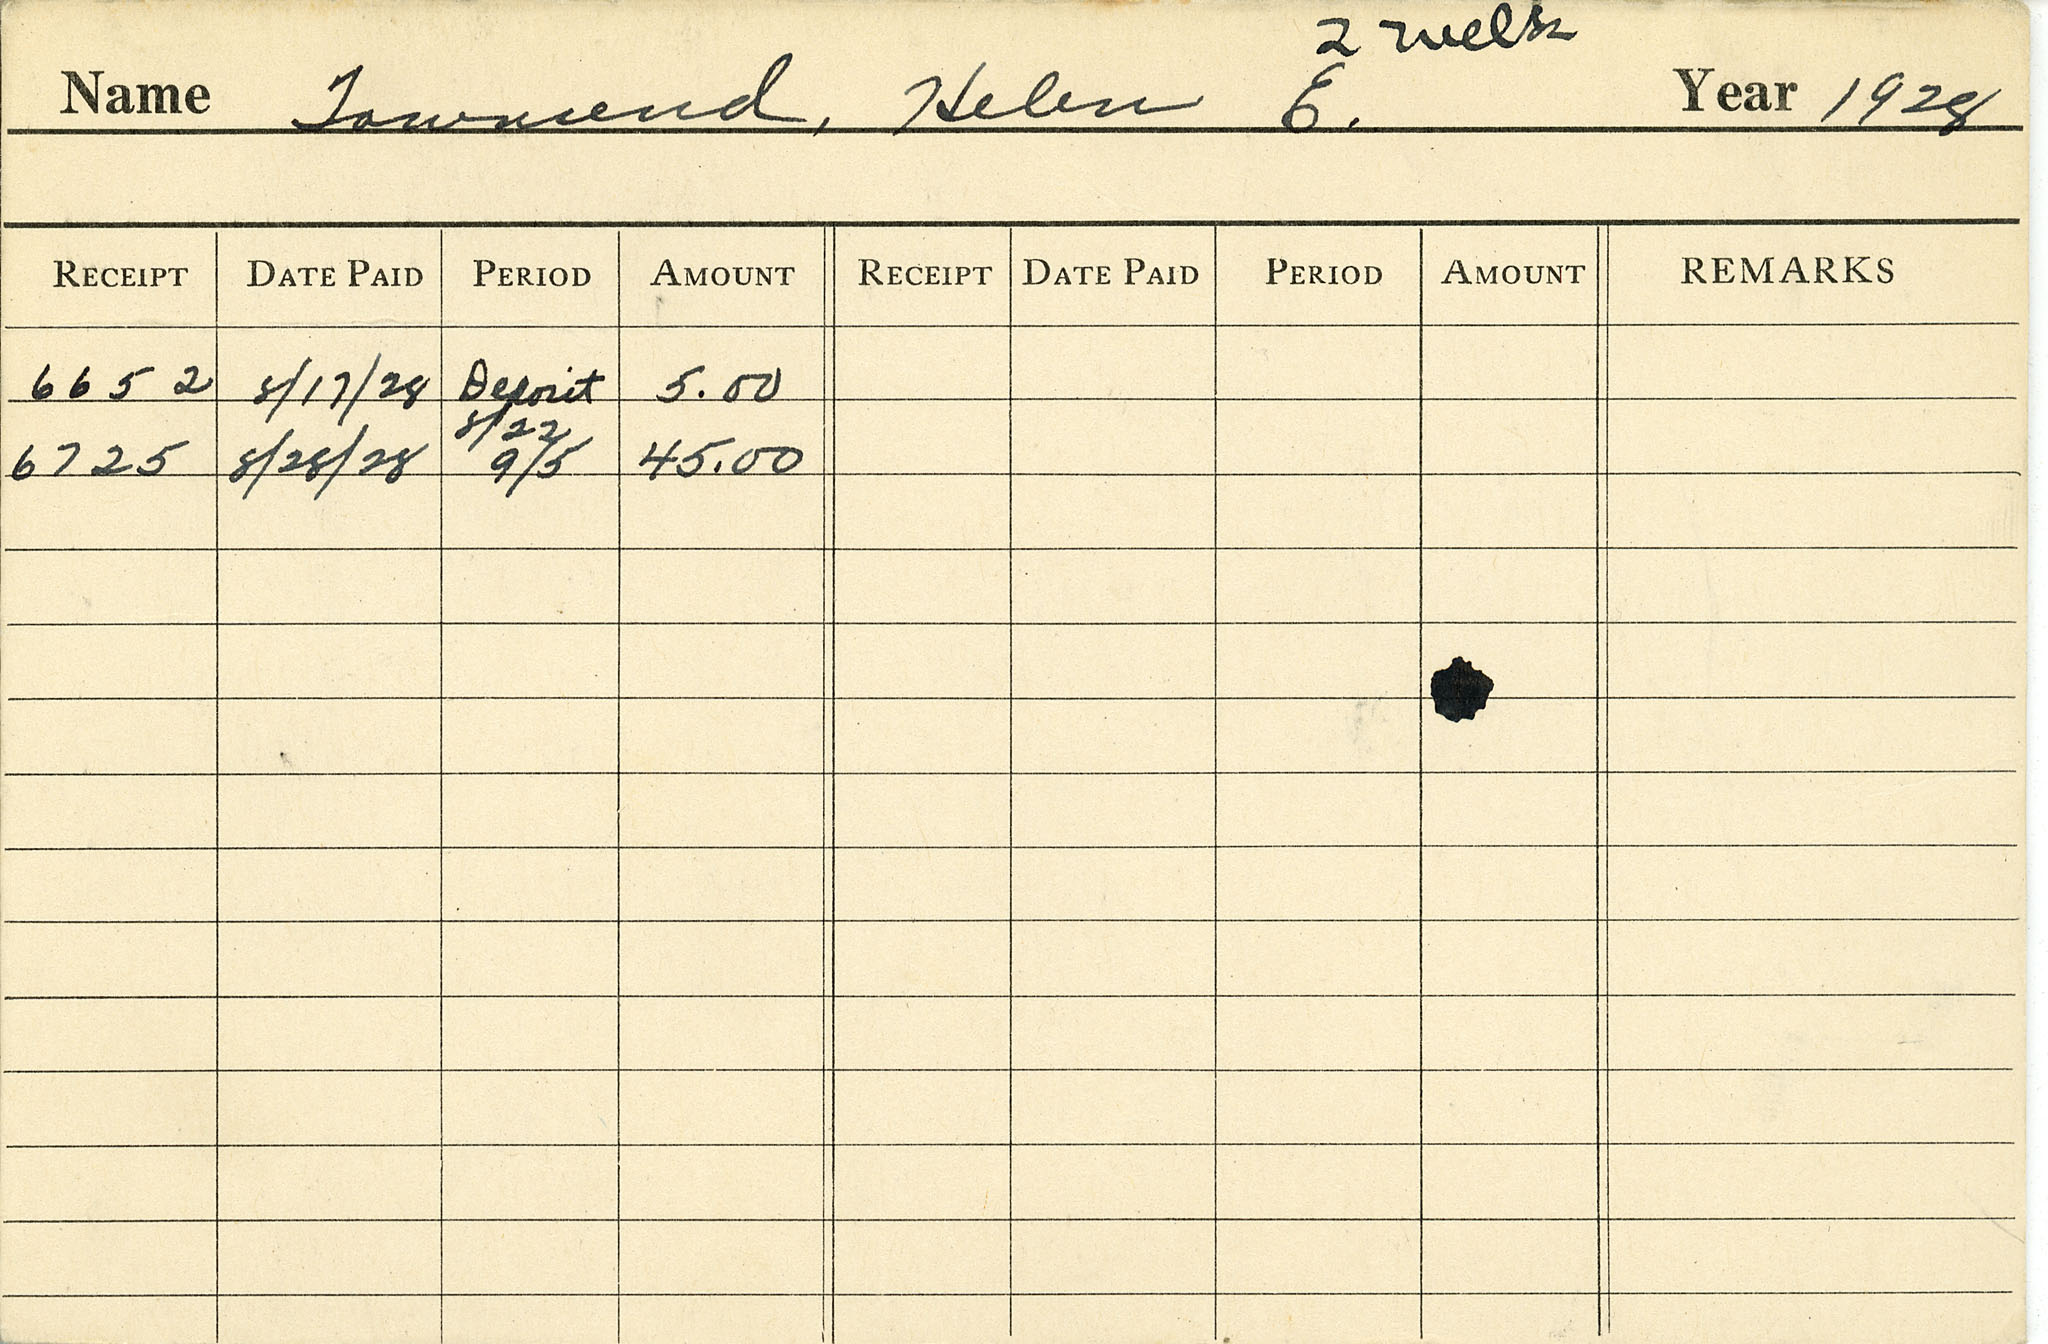 2 weeks
Name Townsend, Helen E. Year 1928
RECEIPT DATE PAID PERIOD AMOUNT RECEIPT DATE PAID PERIOD AMOUNT REMARKS
6652 8/17/28 Deposit 5.00
8/22
6725 8/28/28 9/5 45.00